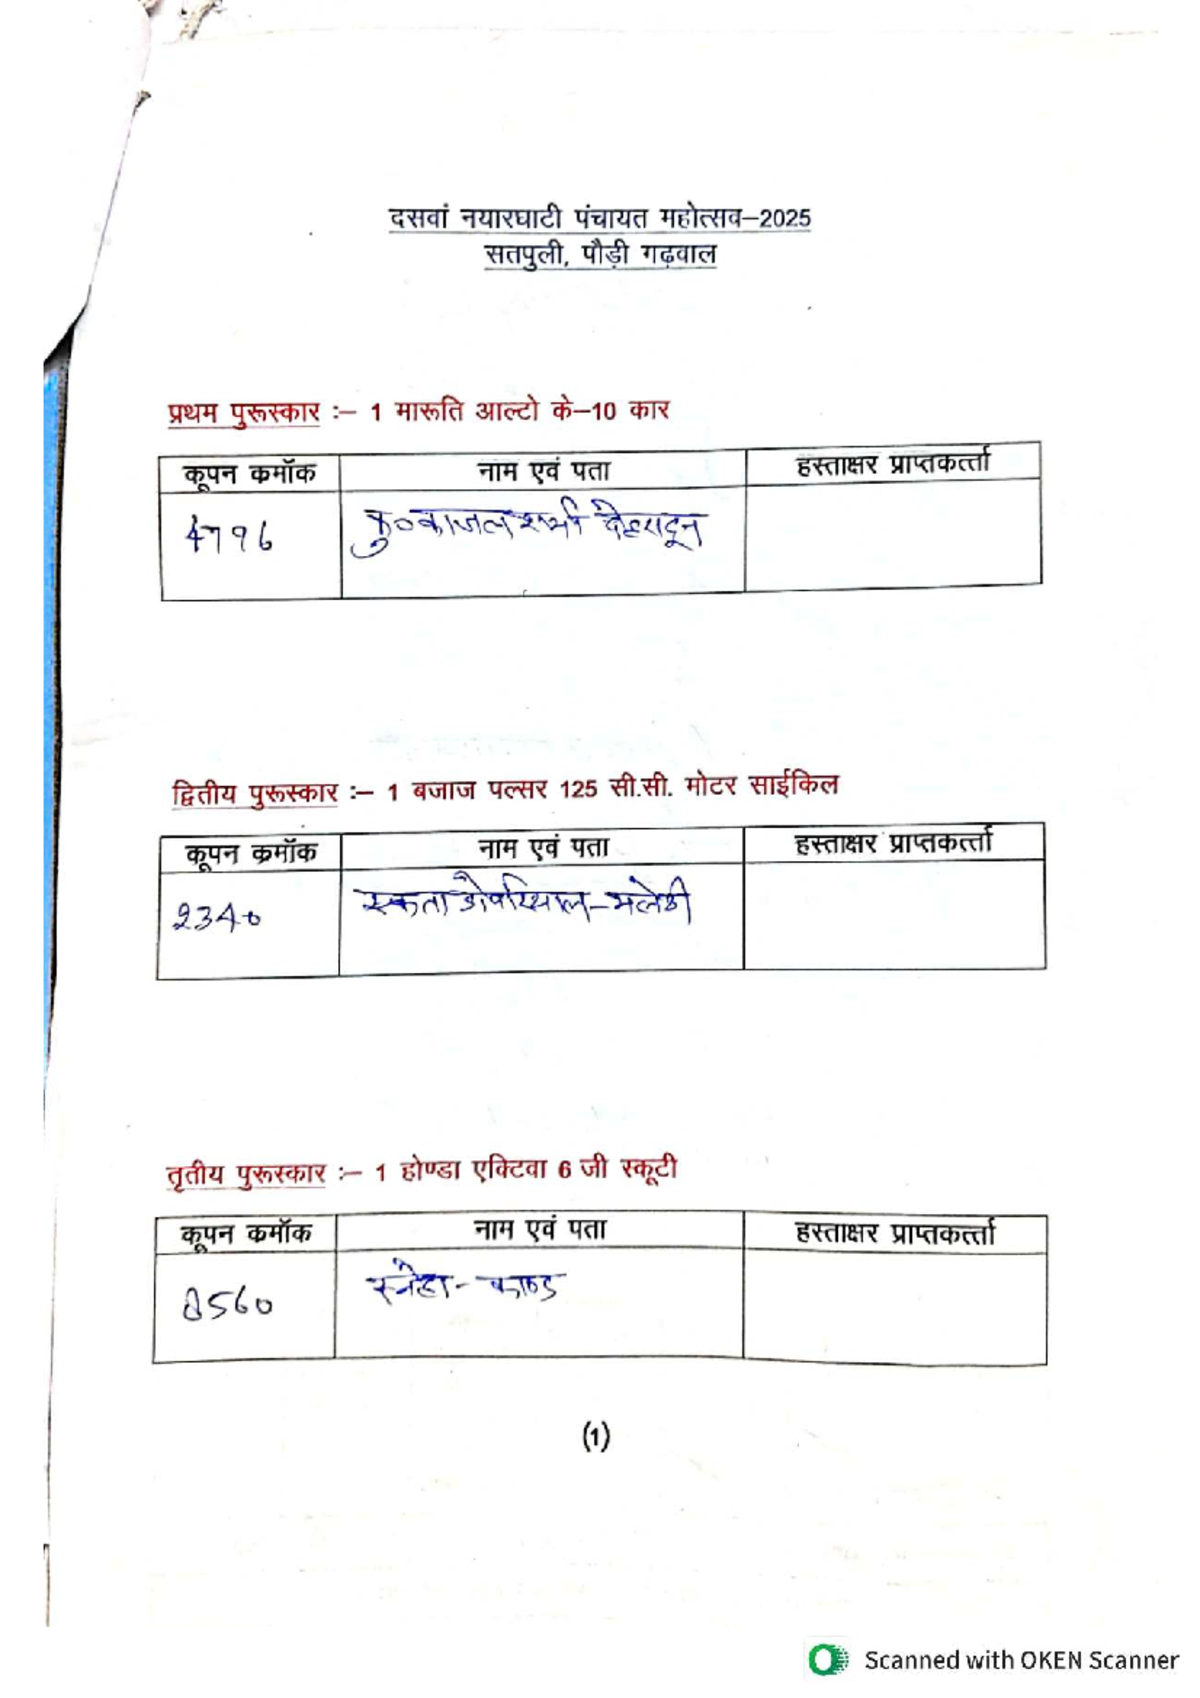 दसवां नयारघाटी पंचायत महोत्सव–2025
सतपुली, पौड़ी गढ़वाल
प्रथम पुरूस्कार :– 1 मारूति आल्टो के–10 कार
कूपन कमॉक नाम एवं पता हस्ताक्षर प्राप्तकर्त्ता
4796 कु० काजल शर्मा देहरादून
द्वितीय पुरूस्कार :– 1 बजाज पल्सर 125 सी.सी. मोटर साईकिल
कूपन क्रमॉक नाम एवं पता हस्ताक्षर प्राप्तकर्त्ता
2340
तृतीय पुरूस्कार :– 1 होण्डा एक्टिवा 6 जी स्कूटी
कूपन कमॉक नाम एवं पता हस्ताक्षर प्राप्तकर्त्ता
8560 स्नेहा - काण्ड
(1)
Scanned with OKEN Scanner